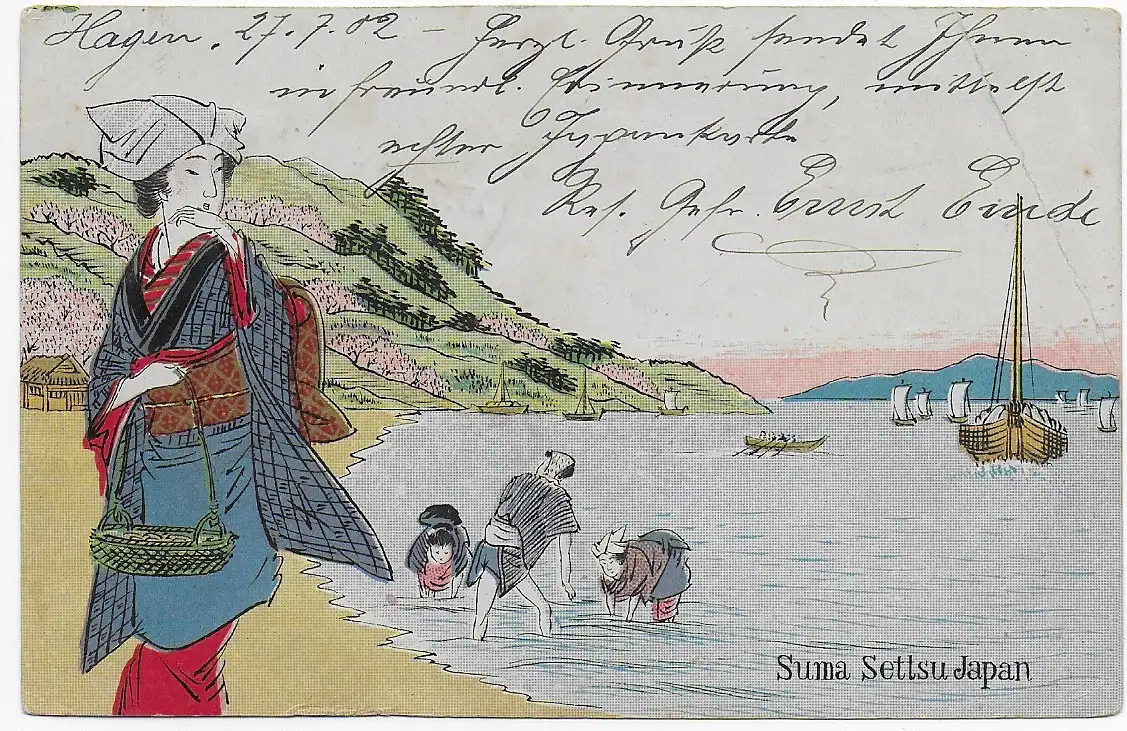 Hagen, 27.7.02 – Herzl. Gruß sendet Ihnen
in freundl. Erinnerung, mittelst
echter Japankarte
Ernst Emde
Suma Settsu Japan